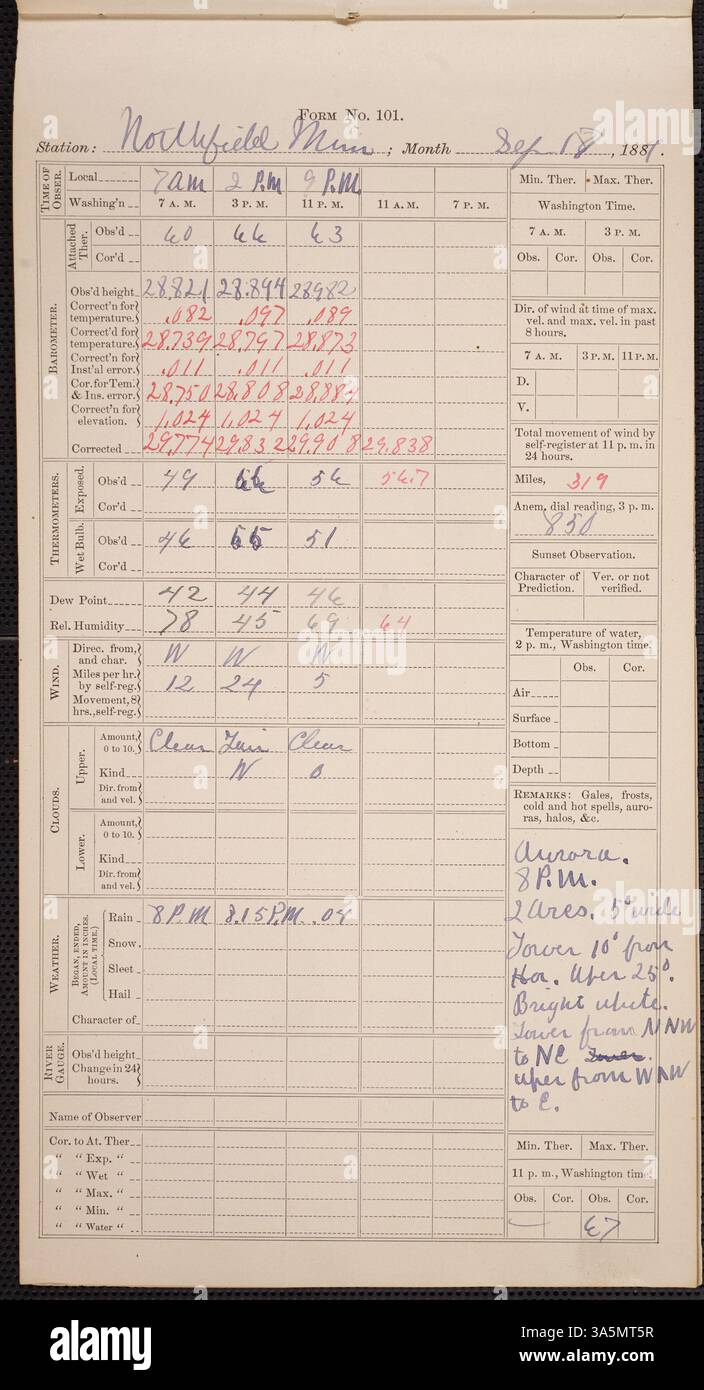 FORM NO. 101.
Station: Northfield Minn ; Month Sep 18 , 1881.
TIME OF OBSER. Local 7 am 2 P.M 9 P.M.
Washing'n 7 A. M. 3 P. M. 11 P. M. 11 A. M. 7 P. M.
Attached Ther. Obs'd 60 66 63
Cor'd
BAROMETER.
Obs'd height 28.821 28.894 28982
Correct'n for temperature. .082 .097 .089
Correct'd for temperature. 28.739 28.797 28.873
Correct'n for Inst'al error. .011 .011 .011
Cor. for Tem. & Ins. error. 28.750 28.808 28.884
Correct'n for elevation. 1,024 1,024 1,024
Corrected 29,774 29.832 29.908 29.838
THERMOMETERS.
Exposed. Obs'd 49 66 56 56.7
Cor'd
Wet Bulb. Obs'd 46 55 51
Cor'd
Dew Point 42 44 46
Rel. Humidity 78 45 69 64
WIND.
Direc. from, and char. W W N
Miles per hr. by self-reg. 12 24 5
Movement, 8 hrs., self-reg.
CLOUDS.
Upper. Amount, 0 to 10. Clear Fair Clear
Kind N 0
Dir. from and vel.
Lower. Amount, 0 to 10.
Kind
Dir. from and vel.
WEATHER.
BEGAN, ENDED, AMOUNT IN INCHES. (LOCAL TIME.)
Rain 8 P.M 8.15 P.M. .04
Snow.
Sleet
Hail
Character of
RIVER GAUGE.
Obs'd height
Change in 24 hours.
Name of Observer
Cor. to At. Ther
" " Exp. "
" " Wet "
" " Max. "
" " Min. "
" " Water "
Min. Ther. Max. Ther.
Washington Time.
7 A. M. 3 P. M.
Obs. Cor. Obs. Cor.
Dir. of wind at time of max. vel. and max. vel. in past 8 hours.
7 A. M. 3 P. M. 11 P. M.
D.
V.
Total movement of wind by self-register at 11 p. m. in 24 hours.
Miles, 319
Anem. dial reading, 3 p. m.
850
Sunset Observation.
Character of Prediction. Ver. or not verified.
Temperature of water, 2 p. m., Washington time.
Obs. Cor.
Air
Surface
Bottom
Depth
REMARKS: Gales, frosts, cold and hot spells, auroras, halos, &c.
Aurora.
8 P.M.
2 Arcs. 5° wide
Lower 10° from
Hor. Uper 25°.
Bright white.
Lower from NNW
to NE Lower.
uper from WNW
to E.
Min. Ther. Max. Ther.
11 p. m., Washington time.
Obs. Cor. Obs. Cor.
— 67
alamy
3A5MT5R
www.alamy.com